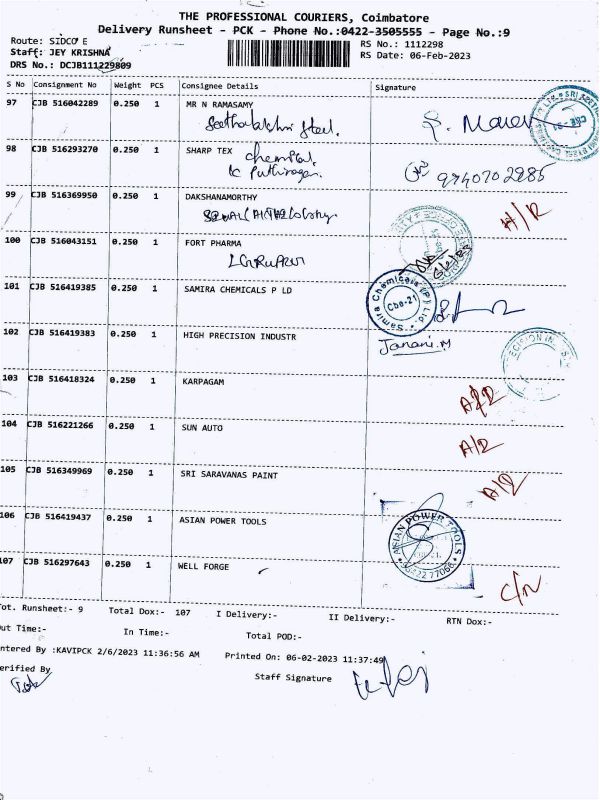 THE PROFESSIONAL COURIERS, Coimbatore
Delivery Runsheet - PCK - Phone No.:0422-3505555 - Page No.:9
Route: SIDCO E
Staff: JEY KRISHNA
DRS No.: DCJB111229809
RS No.: 1112298
RS Date: 06-Feb-2023
S No Consignment No Weight PCS Consignee Details Signature
97 CJB 516042289 0.250 1 MR N RAMASAMY
98 CJB 516293270 0.250 1 SHARP TEX chemical
9740702985
99 CJB 516369950 0.250 1 DAKSHANAMORTHY
A/R
100 CJB 516043151 0.250 1 FORT PHARMA
101 CJB 516419385 0.250 1 SAMIRA CHEMICALS P LD
Samira Chemicals (P) Ltd
Cbe-21
102 CJB 516419383 0.250 1 HIGH PRECISION INDUSTR
Janani.M
103 CJB 516418324 0.250 1 KARPAGAM
104 CJB 516221266 0.250 1 SUN AUTO
105 CJB 516349969 0.250 1 SRI SARAVANAS PAINT
106 CJB 516419437 0.250 1 ASIAN POWER TOOLS
ASIAN POWER TOOLS
107 CJB 516297643 0.250 1 WELL FORGE
ot. Runsheet:- 9 Total Dox:- 107 I Delivery:- II Delivery:- RTN Dox:-
ut Time:- In Time:- Total POD:-
ntered By :KAVIPCK 2/6/2023 11:36:56 AM Printed On: 06-02-2023 11:37:49
erified By Staff Signature